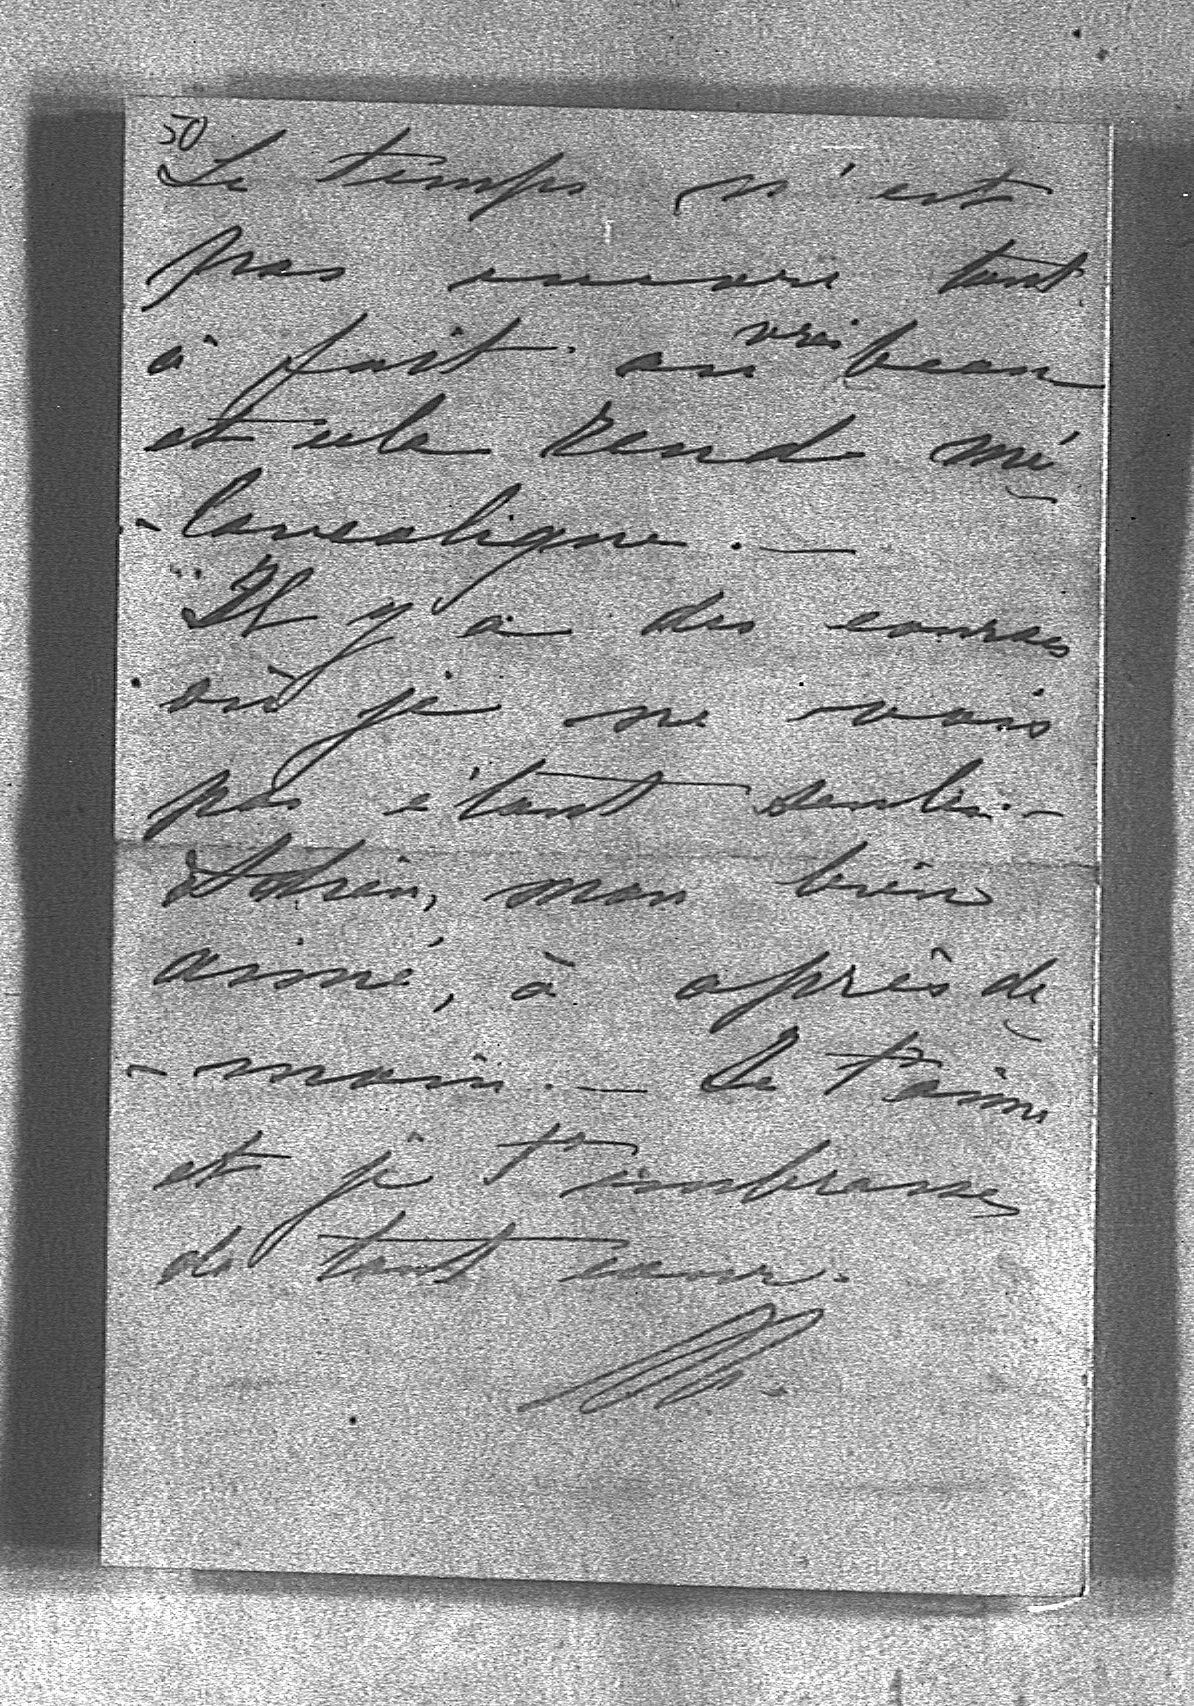 50
Le temps n'est
pas encore tout
à fait au vrai beau
et cela rend mé
-lancolique. —
Il y a des courses
où je ne vais
pas étant seule. —
mon bien
aimé, à après de
-main. — Je t'aime
et je t'embrasse
de tout cœur.